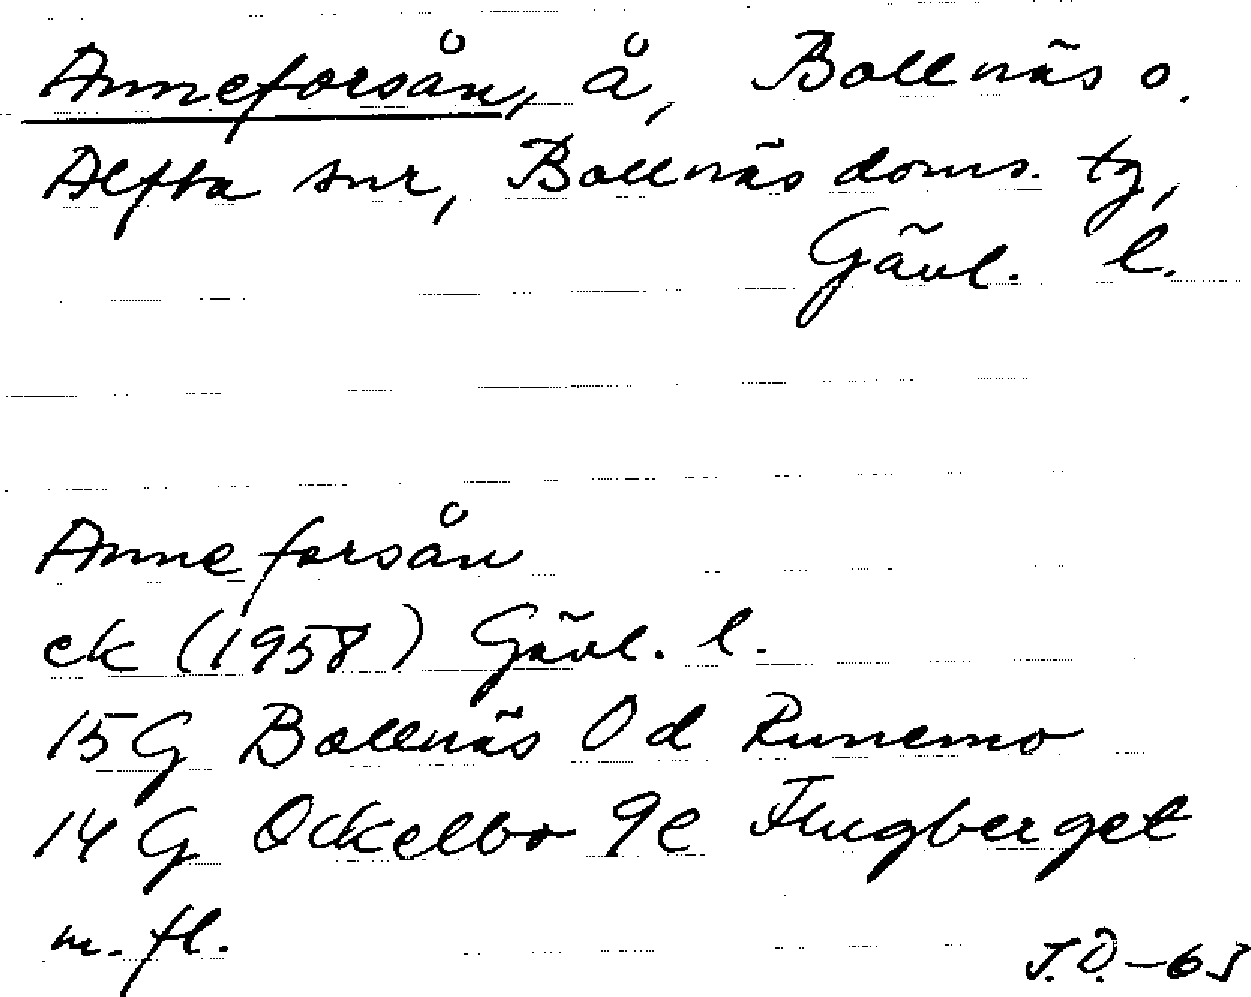 Anneforsån, å, Bollnäs o.
Alfta snr, Bollnäs doms. tg,
Gävl. l.
Anneforsån
ek (1958) Gävl. l.
15G Bollnäs 0d Runemo
14G Ockelbo 9e Flugberget
m. fl.
J.Ö.-63